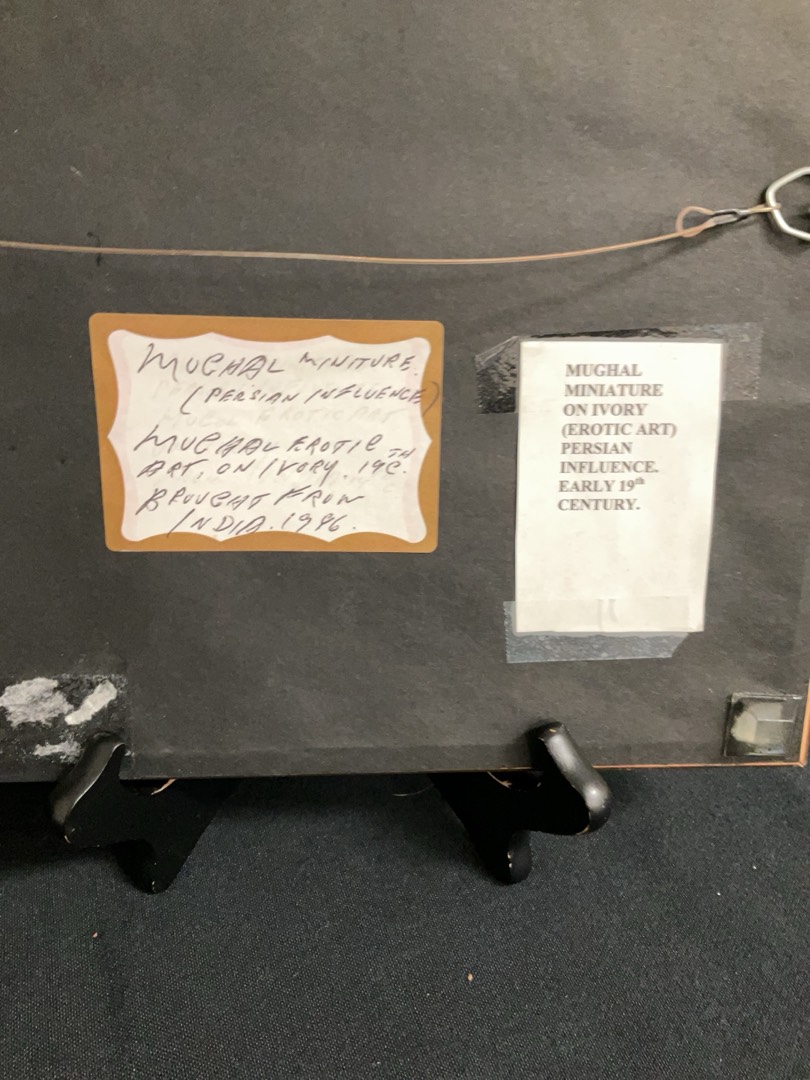 MUGHAL MINITURE.
(PERSIAN INFLUENCE)
MUGHAL EROTIC
ART, ON IVORY. 19TH C.
BROUGHT FROM
INDIA. 1996.
MUGHAL
MINIATURE
ON IVORY
(EROTIC ART)
PERSIAN
INFLUENCE.
EARLY 19th
CENTURY.